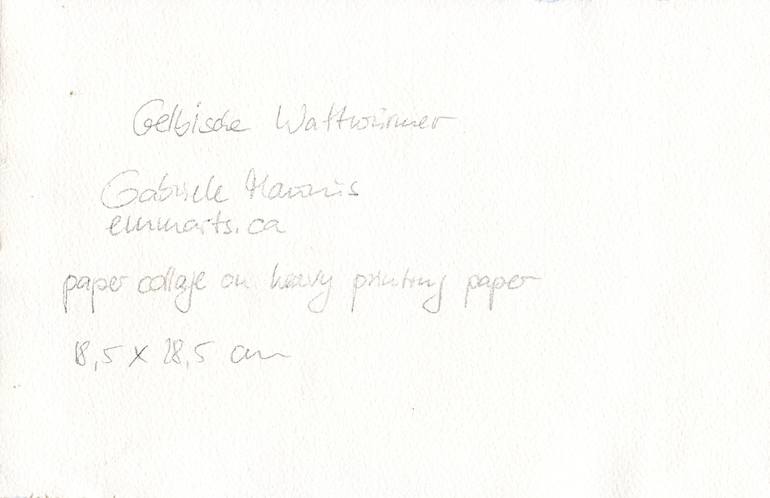 Gelbische Wattwürmer
Gabriele Maurus
emmarts.ca
paper collage on heavy printing paper
18,5 x 28,5 cm